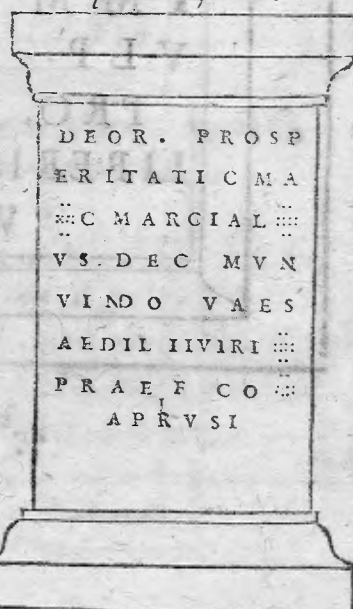 DEOR. PROSP
ERITATI C MA
C MARCIAL
VS. DEC MVN
VINDO VAES
AEDIL IIVIRI
PRAEF CO
I
APRVSI